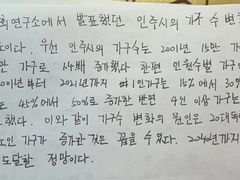 회연구소에서 발표했던 인주시의 가구 수 변
소이다. 우선 인주시의 가구수는 2001년 15만 가
만 가구로 4배 증가했다 한편 인원수별 가구의
001년부터 2021년까지 1인가구는 15%에서 30%
는 45%에서 50%로 증가한 반면 4인 이상 가구는
했다. 이와 같이 가구수 변화의 원인은 20대 독
노인 가구가 증가한 것은 꼽을 수 있다. 2040년까지
도달할 전망이다.